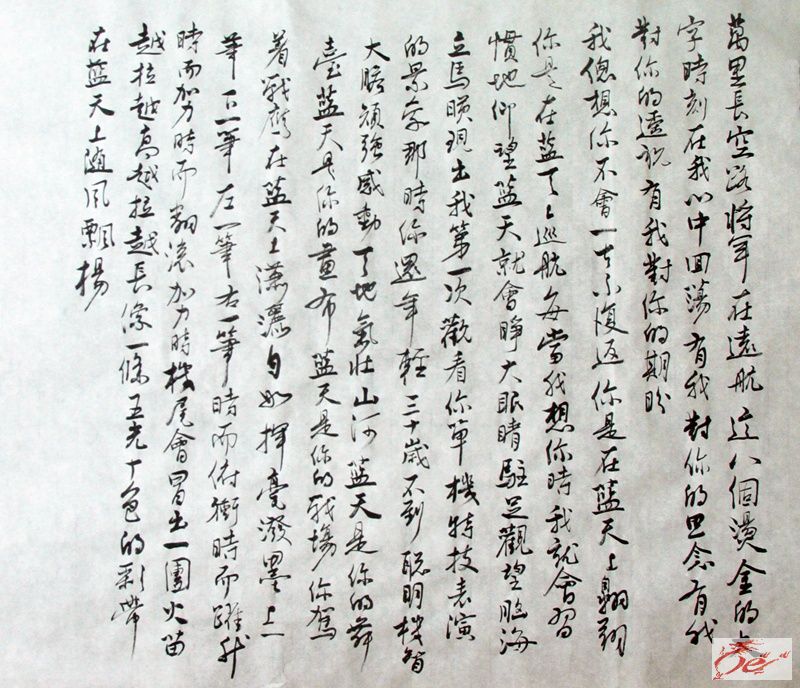 萬里長空路將軍在遠航這八個燙金的大
字時刻在我心中回蕩有我對你的思念有我
對你的遠祝有我對你的期盼
我總想你不會一去不復返你是在藍天上翱翔
你是在藍天上巡航每當我想你時我就會習
慣地仰望藍天就會睜大眼睛駐足觀望腦海
立馬映現出我第一次觀看你單機特技表演
的景象那時你還年輕三十歲不到聰明機智
大膽頑強感動天地氣壯山河藍天是你的舞
臺藍天是你的畫布藍天是你的戰場你駕
着戰鷹在藍天上瀟灑自如揮毫潑墨上一
筆下一筆左一筆右一筆時而俯衝時而躍升
時而加力時而翻滾加力時機尾會冒出一團火苗
越拉越高越拉越長像一條五光十色的彩帶
在藍天上随風飄揚